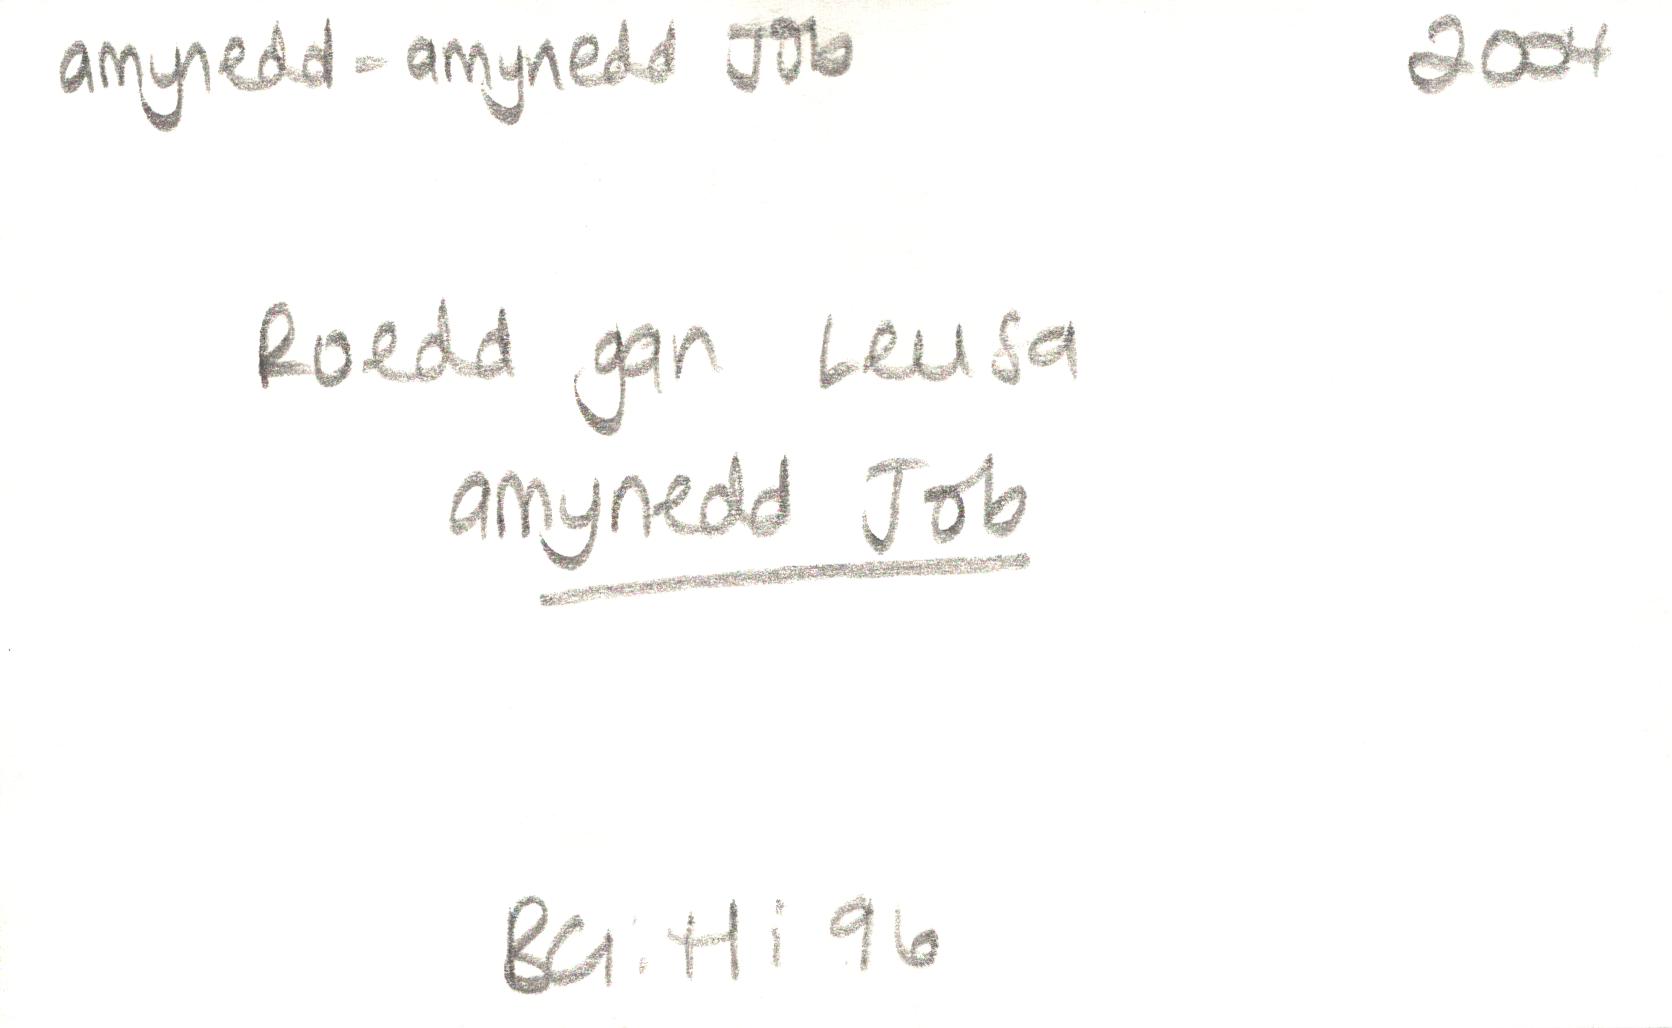 amynedd - amynedd Job 2004
Roedd gan Leusa
amynedd Job
BG: H: 96